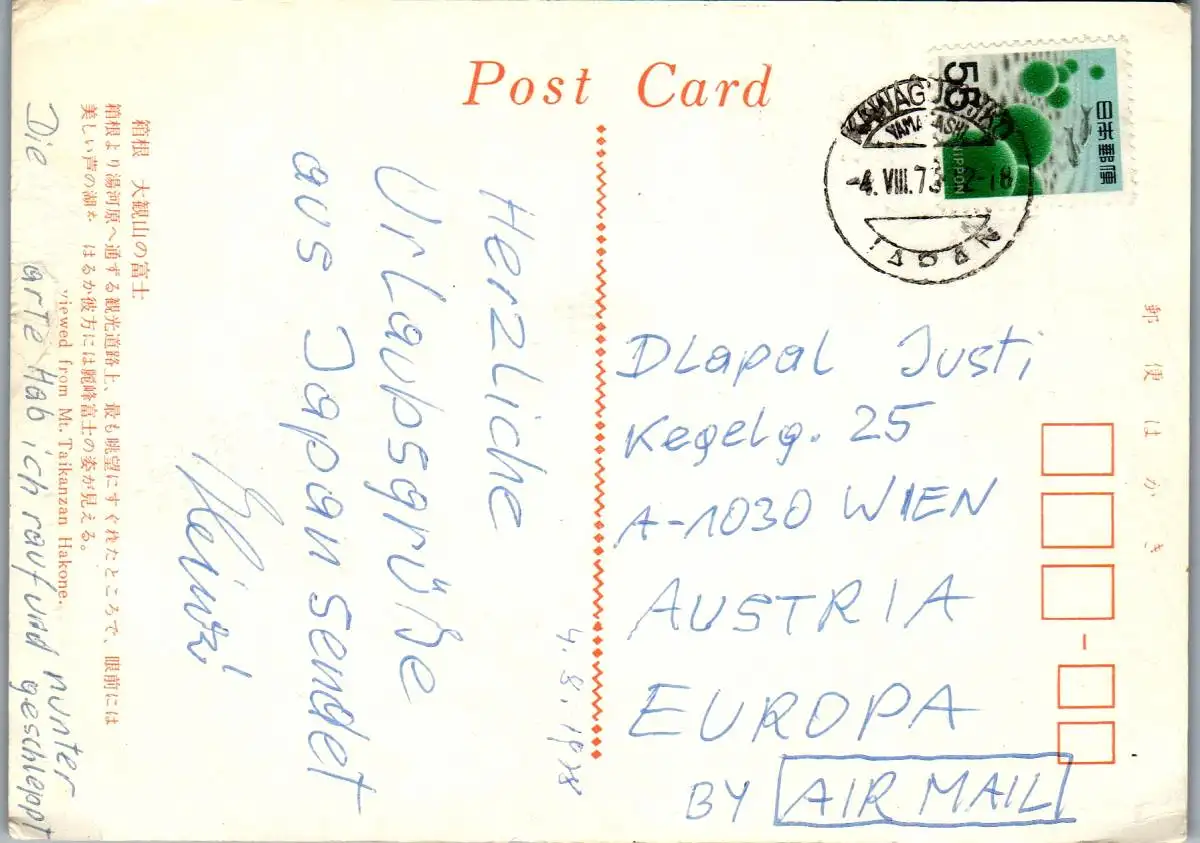 Post Card
50
日本郵便
NIPPON
KAWAGUCHIKO
YAMANASHI
-4. VIII. 73 12-18
NIPPON
郵便はがき
箱根 大観山の富士
箱根より湯河原へ通ずる観光道路上、最も眺望にすぐれたところで、眼前には
美しい芦の湖を はるか彼方には麗峰富士の姿が見える。
viewed from Mt. Taikanzan Hakone.
Herzliche
Urlaubsgrüße
aus Japan sendet
Heinzi
4.8.1978
Die arte Hab ich rauf und nunter
geschleppt
DLapal Justi
Kegelg. 25
A-1030 WIEN
AUSTRIA
EUROPA
BY AIR MAIL